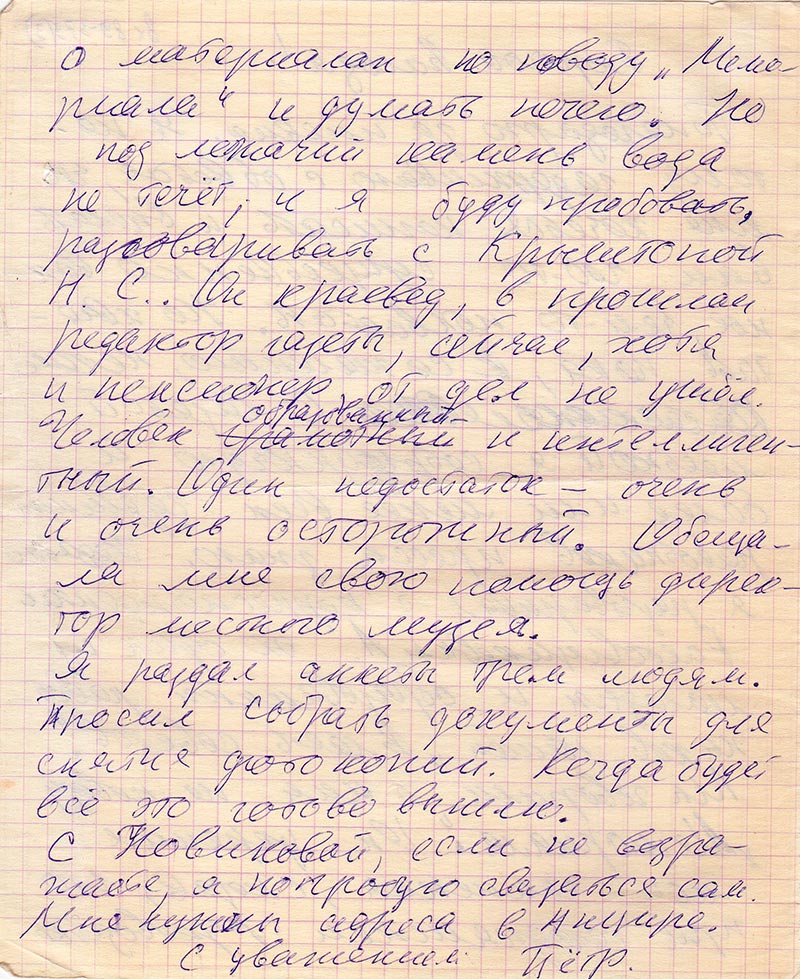 о материалах по поводу „Мемо-
риала“ и думать нечего. Но
под лежачий камень вода
не течёт, и я буду пробовать,
разговаривать с
Н. С.. Он краевед, в прошлом
редактор газеты, сейчас, хотя
и пенсионер, от дел не ушёл.
образованный
Человек грамотный и интеллиген-
тный. Один недостаток – очень
и очень осторожный. Обеща-
ла мне свою помощь дирек-
тор местного музея.
Я раздал анкеты трем людям.
Просил собрать документы для
снятие фотокопий. Когда будет
всё это готово вышлю.
С Новиковой, если не возра-
жаете, я попробую связаться сам.
Мне нужны адреса в Анцире.
С уважением Пётр.